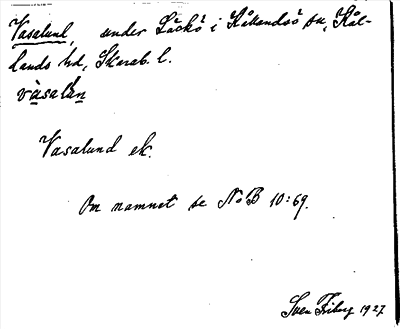 Vasalund, under Läckö i Kållandsö sn, Kål-
lands hd, Skarab. l.
vàsalàn
Vasalund ek.
Om namnet se NoB 10:69.
Sven Friberg 1927